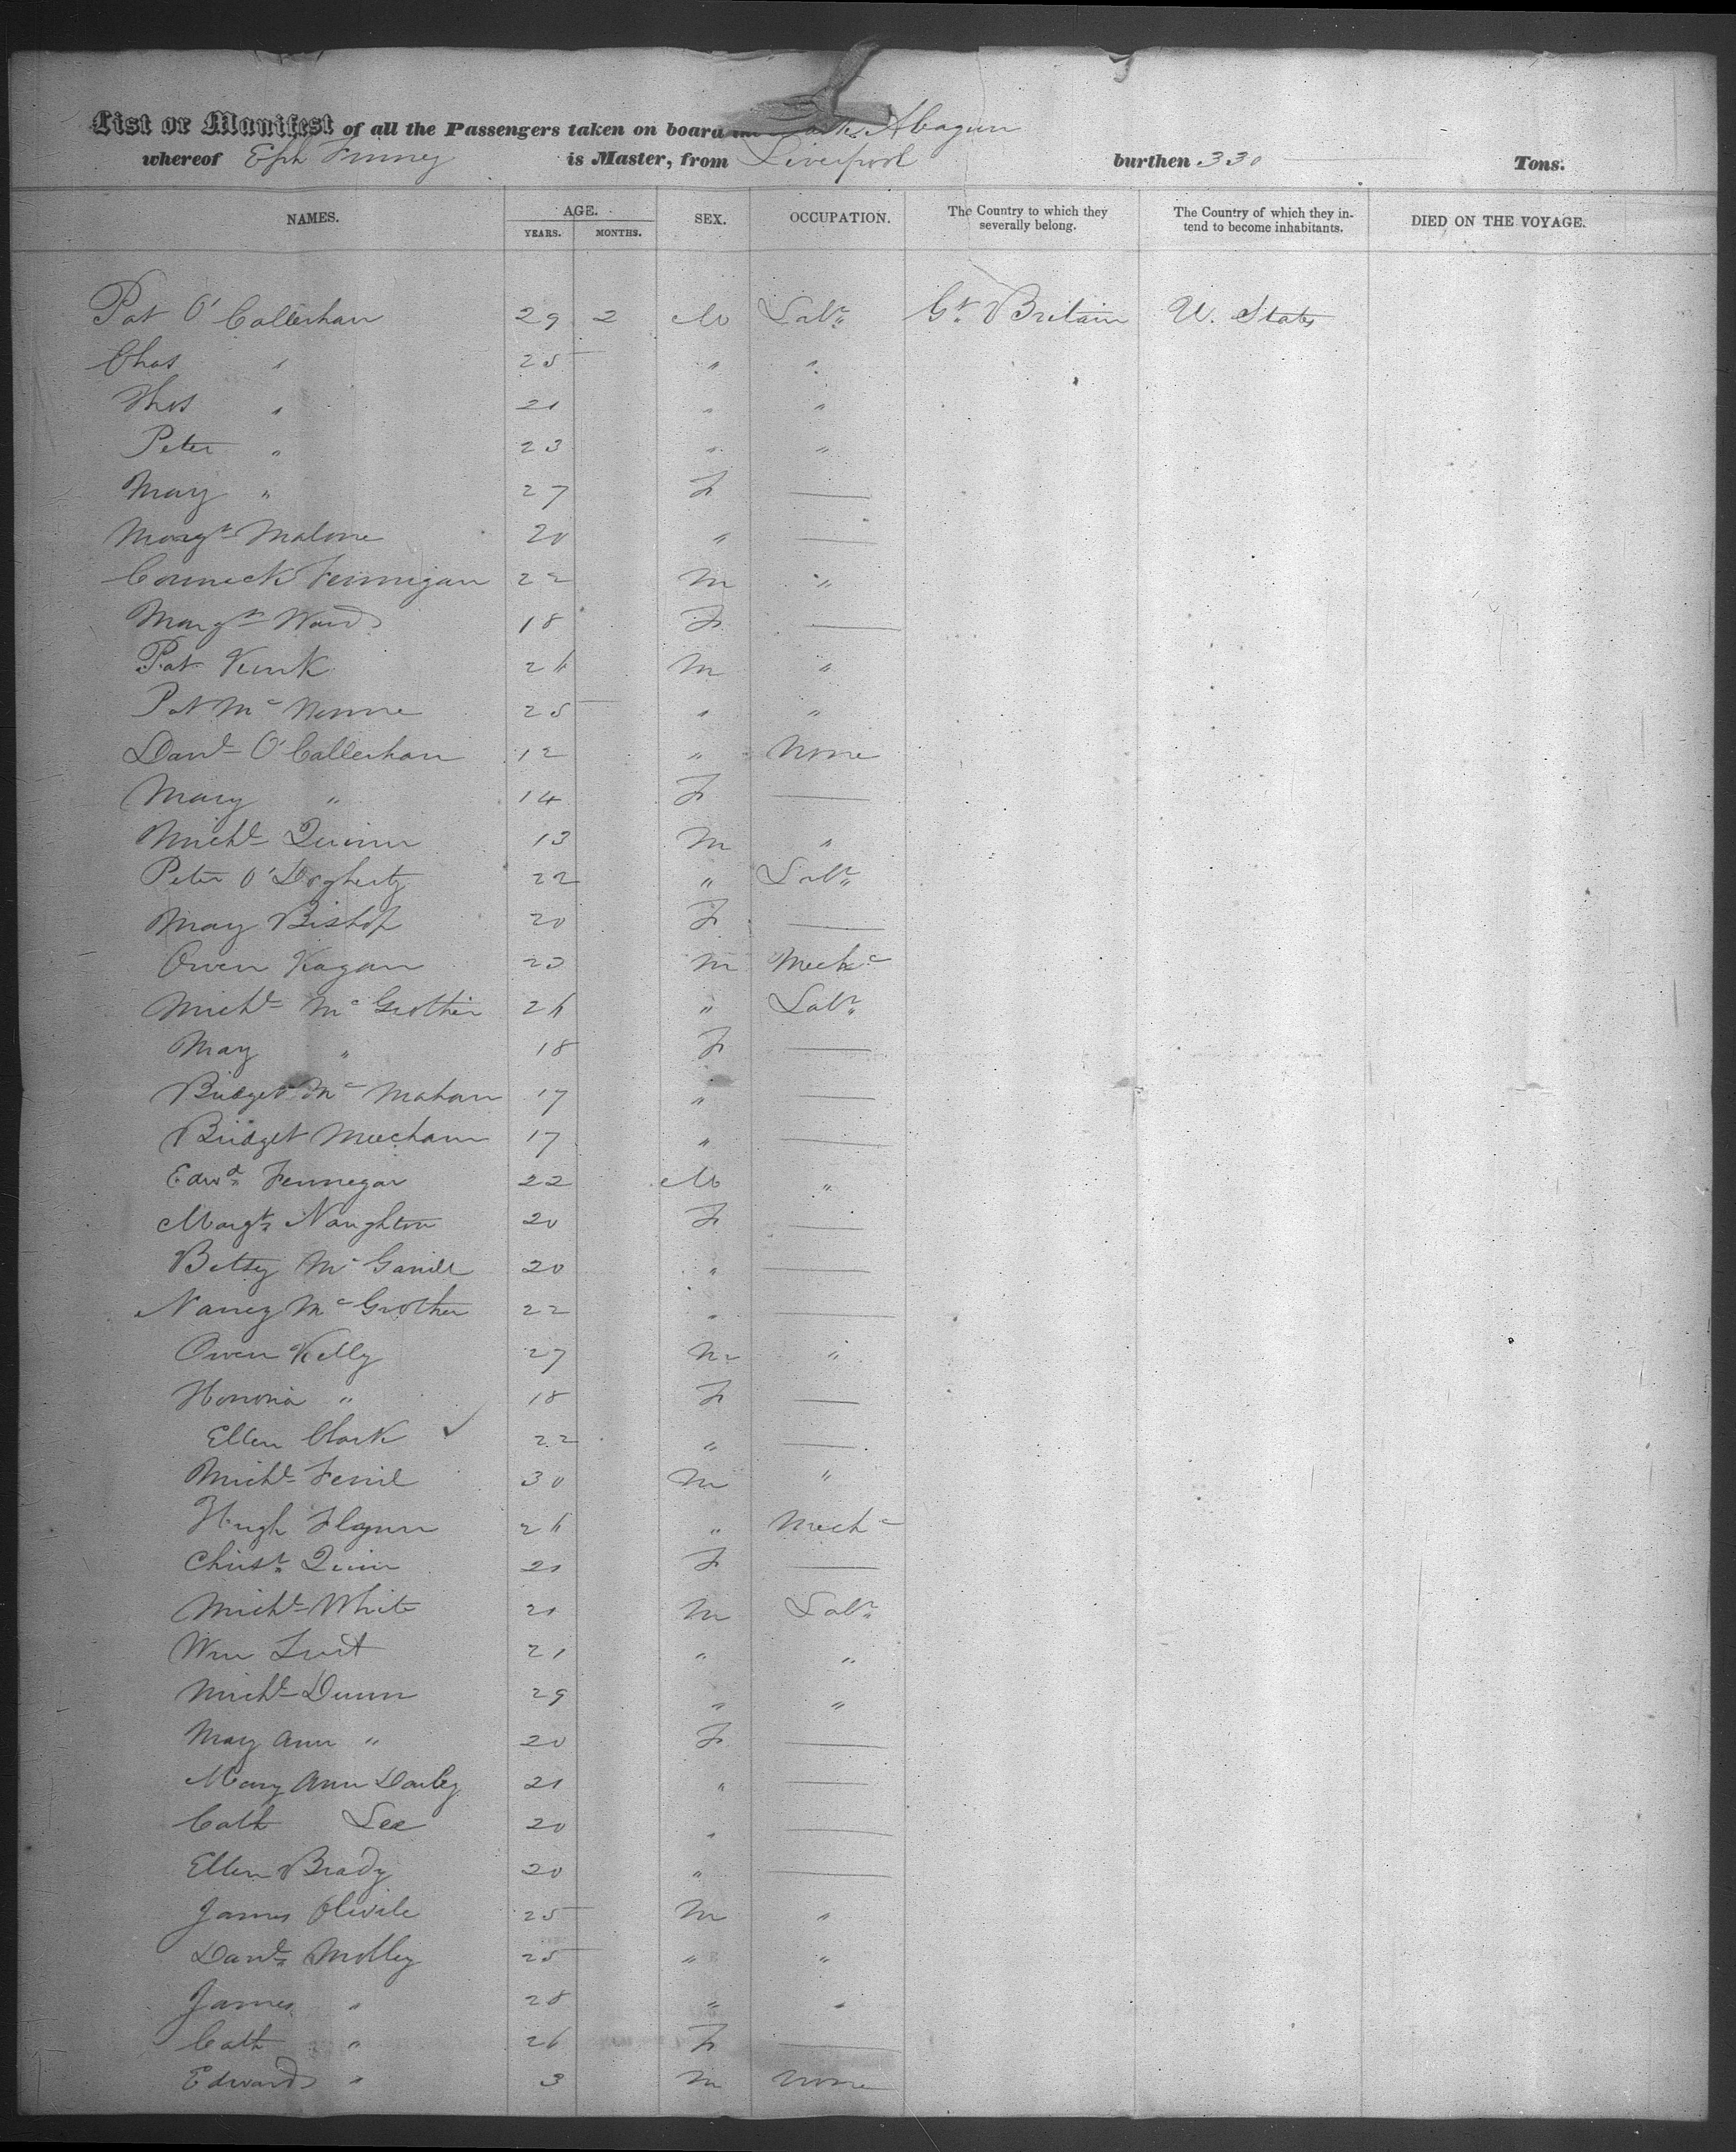 List or Manifest of all the Passengers taken on board the Abagun
whereof Eph Finney is Master, from Liverpool burthen 330 Tons.
NAMES. AGE. SEX. OCCUPATION. The Country to which they severally belong. The Country of which they in-tend to become inhabitants. DIED ON THE VOYAGE.
YEARS. MONTHS.
Pat O'Callerhan 29 2 M Labr Gt Britain U. States
Chas " 25 " "
Thos " 21 " "
Peter " 23 " "
May " 27 F —
Margt Malone 20 " —
Connick Fennigan 22 M "
Margt Ward 18 F —
Pat Kirk 26 M "
Pat Mc 25 " "
Danl O'Callerhan 12 " None
Mary " 14 F —
Michl Quinn 13 M "
Peter O'Dogherty 22 " Labr
May Bishop 20 F —
Owen Kagan 23 M Mechc
Michl Mc Grother 26 " Labr
May " 18 F —
Bridget Mc Mahan 17 " —
Bridget Meechan 17 " —
Edwd Fennegar 22 M "
Margt Naughton 20 F —
Betsy Mc 20 " —
Nancy Mc Grother 22 " —
Owen Kelly 27 M "
Honoria " 18 F —
Ellen Clark ✓ 22 " —
Michl 30 M "
Hugh Flynn 26 " Mechc
Christ Quin 21 F —
Michl White 21 M Labr
Wm 21 " "
Michl Dunn 29 " "
May Ann " 20 F —
Mary Ann Darley 21 " —
Cath Lee 20 " —
Ellen Brady 20 " —
James 25 M "
Danl Molley 25 " "
James " 28 " "
Cath " 26 F —
Edward " 3 M None